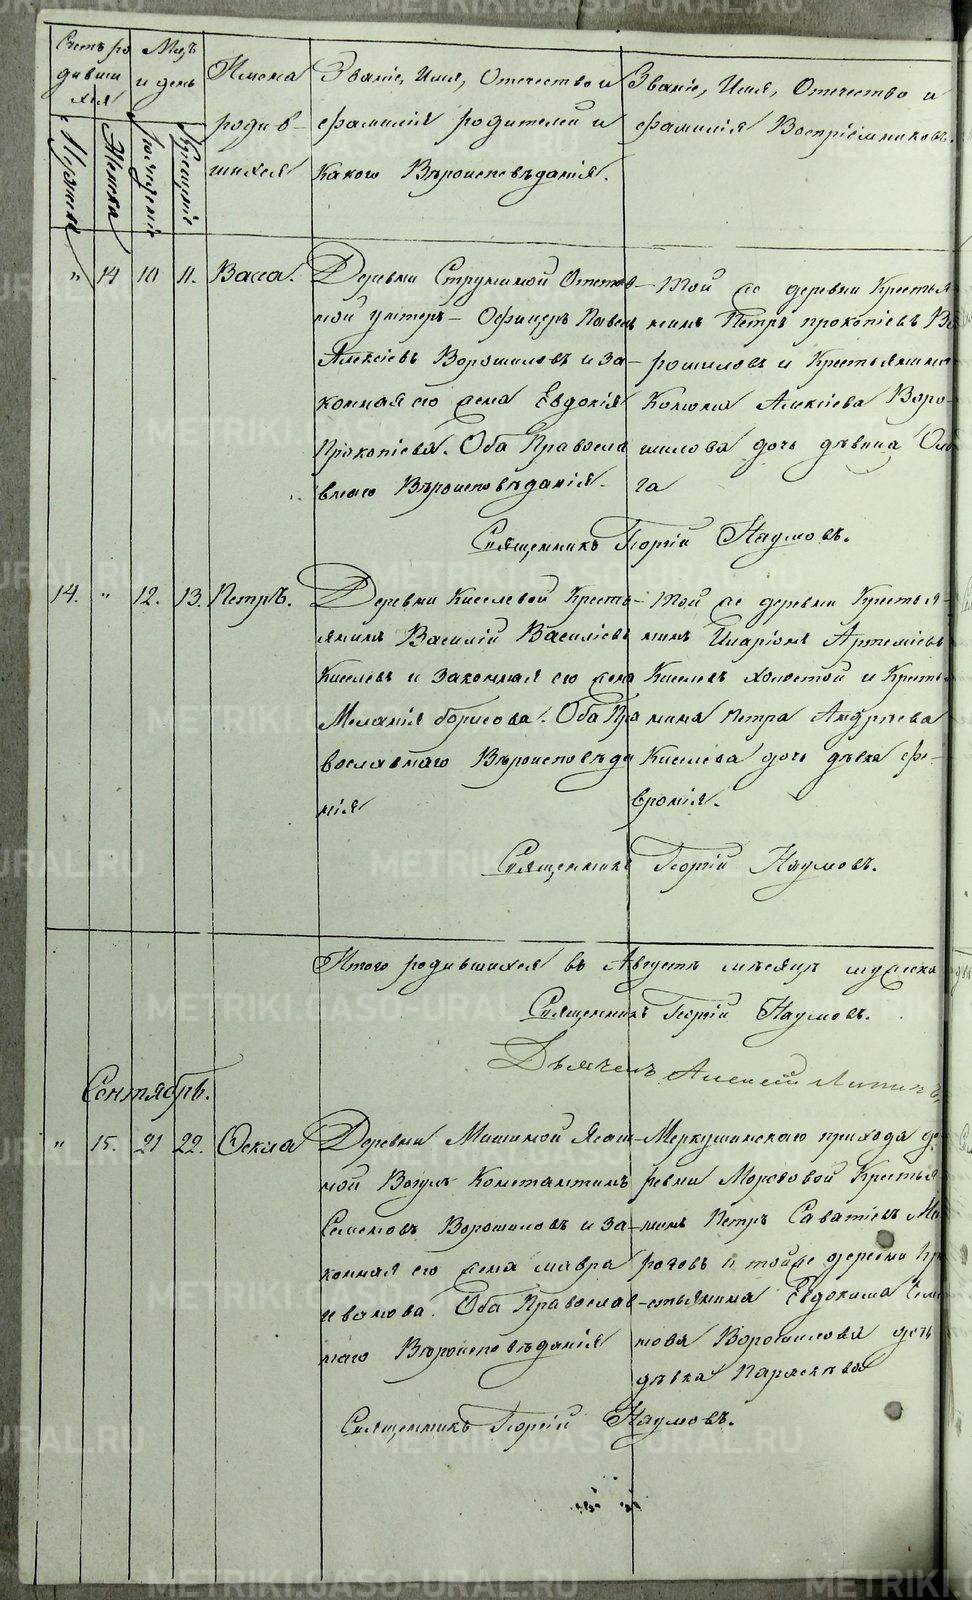 Счетъ родившихся
Мцъ и день
Имена родившихся
Званіе, Имя, Отечество и фамилія родителей и какого Вѣроисповѣданія.
Званіе, Имя, Отечество и фамилія Воспріемниковъ.
Мужеска
Женска
Рожденіе
Крещеніе
" 14 10 11. Васса.
Деревни Отстав-
ной унтеръ-Офицеръ Павелъ
Алексіевъ Ворошиловъ и за-
конная его жена Евдокія
Прокопіева. Оба Правосла
внаго Вѣроисповѣданія.
Той же деревни Крестья
нинъ Петръ прокопіевъ Во
рошиловъ и Крестьянина
Конона Алексіева Воро-
шилова дочь дѣвица Оль
га
Священникъ Георгій Наумовъ.
14. " 12. 13. Петръ.
Деревни Киселевой Кресть-
янинъ Василій Василіевъ
Киселевъ и законная его жена
Меланія борисова. Оба Пра
вославнаго Вѣроисповѣда
нія
Той же деревни Крестья-
нинъ Иларіонъ Артеміевъ
Киселевъ холостой и Кресть
янина Петра Андрѣева
Киселева дочь дѣвка Фе-
вронія.
Священникъ Георгій Наумовъ.
Итого родившихся въ Августѣ мѣсяцѣ мужеска
Священникъ Георгій Наумовъ.
Дьячекъ Алексій
Сентябрь.
" 15. 21 22. Ѳекла
Деревни Мишиной Ясаш-
ной Вогулъ Константинъ
Семеновъ Ворошиловъ и за-
конная его жена мавра
иванова. Оба Православ-
наго Вѣроисповѣданія
Меркушинскаго прихода де
ревни Морозовой Крестья
нинъ Петръ Саватіевъ Мо
розовъ и той же деревни Кр
естьянина Евдокима Семе
нова Ворошилова дочь
дѣвка Параскева
Священникъ Георгій Наумовъ.
METRIKI.GASO-URAL.RU